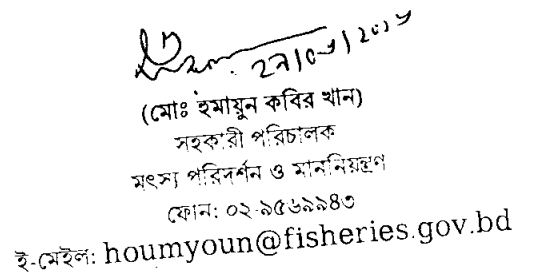 (মোঃ হুমায়ুন কবির খান)
সহকারী পরিচালক
মৎস্য পরিদর্শন ও মাননিয়ন্ত্রণ
ফোন: ০২-৯৫৬৯৯৪৩
ই-মেইল: houmyoun@fisheries.gov.bd